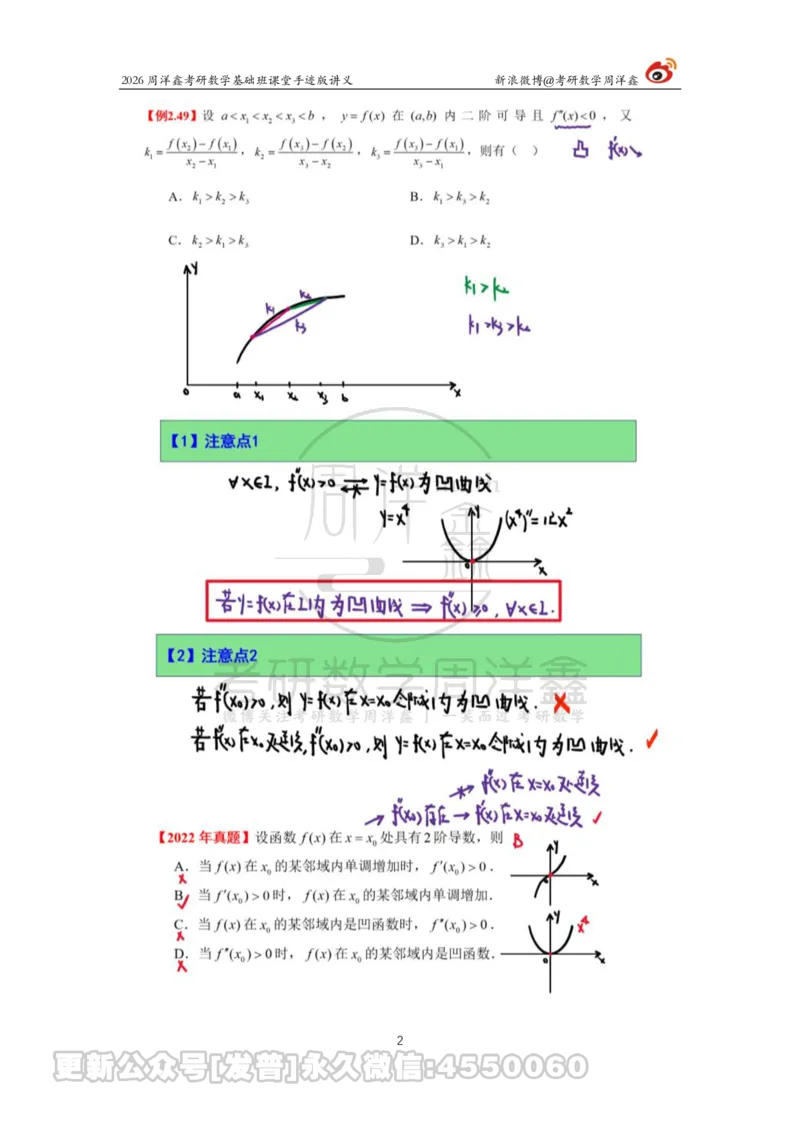 2026 周洋鑫考研数学基础班课堂手迹版讲义 新浪微博@考研数学周洋鑫
【例2.49】设 a<x₁<x₂<x₃<b ， y=f(x) 在 (a,b) 内 二 阶 可 导 且 f″(x)<0 ， 又
k₁=(f(x₂)−f(x₁))/(x₂−x₁)，k₂=(f(x₃)−f(x₂))/(x₃−x₂)，k₃=(f(x₃)−f(x₁))/(x₃−x₁)，则有（ ） 凸 f′(x)↘
A．k₁>k₂>k₃ B．k₁>k₃>k₂
C．k₂>k₁>k₃ D．k₃>k₁>k₂
y
k₁ k₂ k₃
k₁>k₂
k₁>k₃>k₂
0 a x₁ x₂ x₃ b x
【1】注意点1
∀x∈I，f″(x)>0 ⇄ y=f(x)为凹曲线
y=x⁴ y (x⁴)″=12x²
0 x
若y=f(x)在I内为凹曲线 ⇒ f″(x)≥0，∀x∈I.
【2】注意点2
若f″(x₀)>0，则 y=f(x)在x=x₀邻域内为凹曲线. ✗
若f″(x)在x₀处连续，f″(x₀)>0，则 y=f(x)在x=x₀邻域内为凹曲线. ✓
↛ f″(x)在x=x₀处连续
→ f″(x₀)存在 → f′(x)在x=x₀处连续 ✓
【2022 年真题】设函数 f(x) 在 x=x₀ 处具有2阶导数，则 B
A．当 f(x) 在 x₀ 的某邻域内单调增加时，f′(x₀)>0． ✗
B．当 f′(x₀)>0 时，f(x) 在 x₀ 的某邻域内单调增加． ✓
C．当 f(x) 在 x₀ 的某邻域内是凹函数时，f″(x₀)>0． ✗
D．当 f″(x₀)>0 时，f(x) 在 x₀ 的某邻域内是凹函数． ✗
y
0 x
y x⁴
0 x
周洋鑫
考研数学周洋鑫
微博关注考研数学周洋鑫 | 一笑而过 考研数学
2
更新公众号[发普]永久微信:4550060